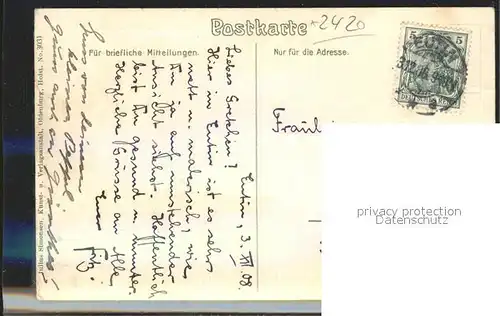 Postkarte
*2420
Für briefliche Mitteilungen.
Nur für die Adresse.
5 5
EUTIN
Eutin, 3. VII 08.
Liebes Gretchen!
Hier in Eutin ist es sehr
nett u. malerisch, wie
Du ja auf umstehender
Ansicht siehst. Hoffentlich
bist Du gesund u. munter.
Herzliche Grüsse an Alle
Euer Fritz.
Fräul
privacy protection
Datenschutz
Julius Simonsen, Kunst- u. Verlagsanstalt, Oldenburg, Holst. No. 3031